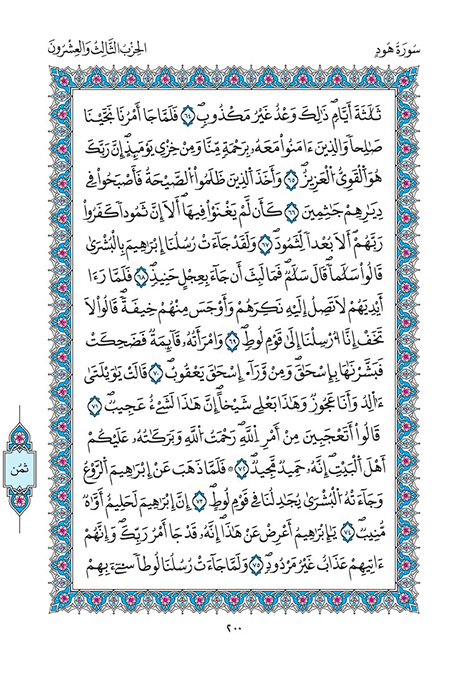 سُورَةُ هُودٍ
الحِزْبُ الثَّالِثُ وَالعِشْرُونَ
ثَلَٰثَةَ أَيَّامٖۖ ذَٰلِكَ وَعْدٌ غَيْرُ مَكْذُوبٖۖ ٦٤ فَلَمَّا جَآءَ امْرُنَا نَجَّيْنَا
صَٰلِحاٗ وَالذِينَ ءَامَنُواْ مَعَهُۥ بِرَحْمَةٖ مِّنَّا وَمِنْ خِزْيِ يَوْمَئِذٍۖ اِنَّ رَبَّكَ
هُوَ اَ۬لْقَوِيُّ اُ۬لْعَزِيزُۖ ٦٥ وَأَخَذَ اَ۬لذِينَ ظَلَمُواْ اُ۬لصَّيْحَةُ فَأَصْبَحُواْ فِے
دِيٰ۪رِهِمْ جَٰثِمِينَ ٦٦ كَأَن لَّمْ يَغْنَوْاْ فِيهَآۖ أَلَآ إِنَّ ثَمُوداٗ كَفَرُواْ
رَبَّهُمُۥٓۖ أَلَا بُعْداٗ لِّثَمُودَۖ ٦٧ وَلَقَدْ جَآءَتْ رُسُلُنَآ إِبْرَٰهِيمَ بِالْبُشْر۪يٰ
قَالُواْ سَلَٰماٗۖ قَالَ سَلَٰمٞۖ فَمَا لَبِثَ أَن جَآءَ بِعِجْلٍ حَنِيذٖۖ ٦٨ فَلَمَّا ر۪ء۪آ
أَيْدِيَهُمْ لَا تَصِلُ إِلَيْهِ نَكِرَهُمْ وَأَوْجَسَ مِنْهُمْ خِيفَةٗۖ قَالُواْ لَا
تَخَفِ اِنَّآ أُرْسِلْنَآ إِلَيٰ قَوْمِ لُوطٖۖ ٦٩ وَامْرَأَتُهُۥ قَآئِمَةٞ فَضَحِكَتْ
فَبَشَّرْنَٰهَا بِإِسْحَٰقَۖ وَمِنْ وَّرَآءِ اِ۪سْحَٰقَ يَعْقُوبُۖ ٧٠ قَالَتْ يَٰوَيْلَت۪يٰٓ
ءَٰالِدُ وَأَنَا عَجُوزٞ وَهَٰذَا بَعْلِے شَيْخاًۖ اِنَّ هَٰذَا لَشَےْءٌ عَجِيبٞۖ ٧١
قَالُوٓاْ أَتَعْجَبِينَ مِنَ اَمْرِ اِ۬للَّهِۖ رَحْمَتُ اُ۬للَّهِ وَبَرَكَٰتُهُۥ عَلَيْكُمُۥٓ
أَهْلَ اَ۬لْبَيْتِۖ إِنَّهُۥ حَمِيدٞ مَّجِيدٞۖ ٧٢ فَلَمَّا ذَهَبَ عَنِ اِبْرَٰهِيمَ اَ۬لرَّوْعُ
وَجَآءَتْهُ اُ۬لْبُشْر۪يٰ يُجَٰدِلُنَا فِے قَوْمِ لُوطٍۖ ٧٣ اِنَّ إِبْرَٰهِيمَ لَحَلِيمٌ اَوَّٰهٞ
مُّنِيبٞۖ ٧٤ يَٰٓإِبْرَٰهِيمُ أَعْرِضْ عَنْ هَٰذَآۖ إِنَّهُۥ قَدْ جَآءَ امْرُ رَبِّكَۖ وَإِنَّهُمُۥٓ
ءَاتِيهِمْ عَذَابٌ غَيْرُ مَرْدُودٖۖ ٧٥ وَلَمَّا جَآءَتْ رُسُلُنَا لُوطاٗ سِےٓءَ بِهِمْ
ثُمُن
٢٠٠